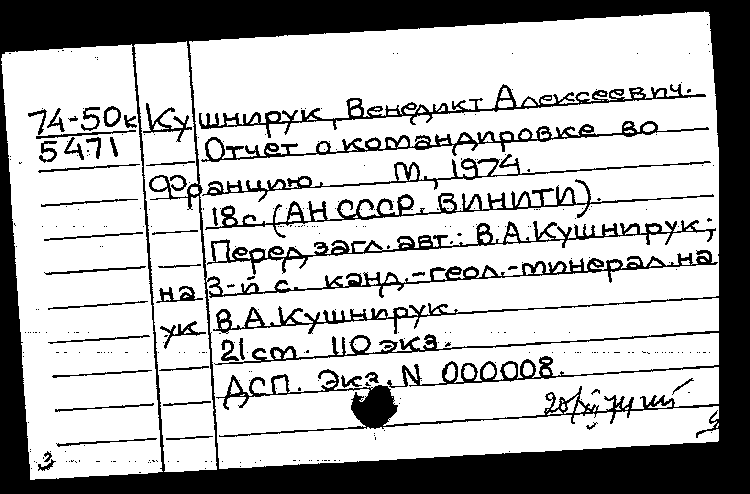 74-50к Кушнирук, Венедикт Алексеевич.
5471 Отчет о командировке во
Францию. М., 1974.
18с. (АН СССР. ВИНИТИ).
Перед загл. авт.: В.А. Кушнирук;
3-й с. канд.-геол.-минерал. на
на
ук В.А. Кушнирук.
21 cm. 110 экз.
ДСП. Экз. N 000008.
20/XII 74
3